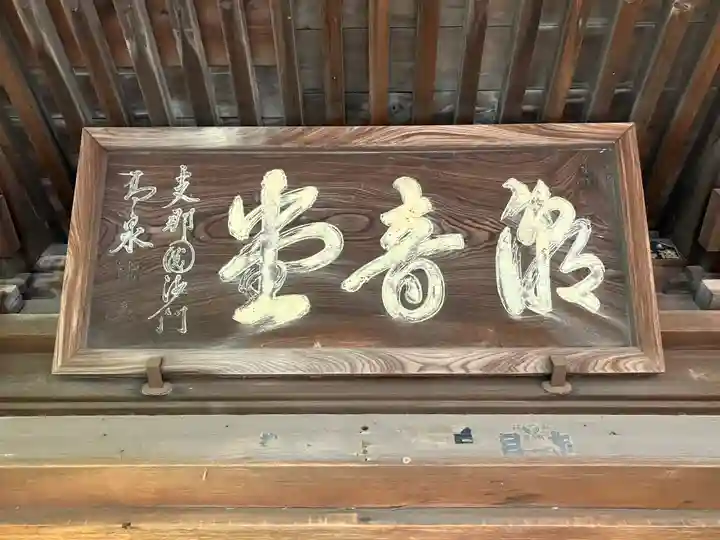 潮音堂
支那 沙門
高泉